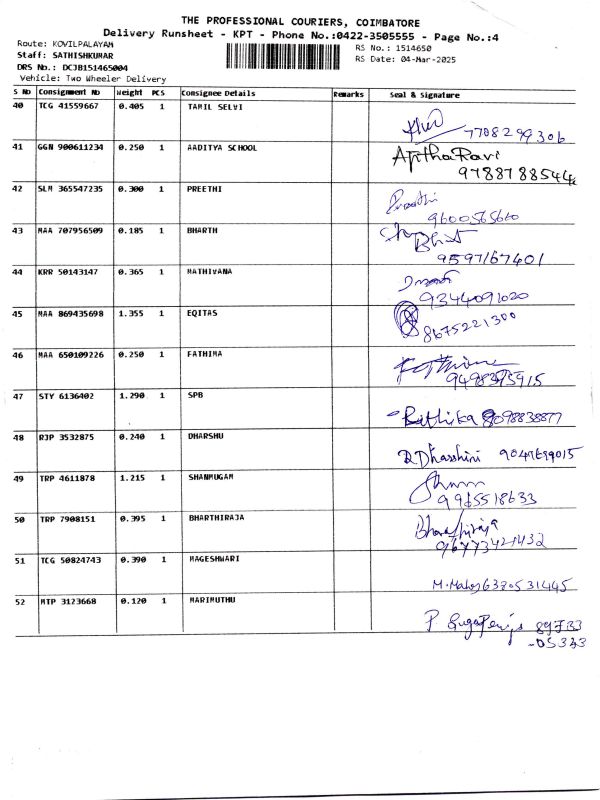 THE PROFESSIONAL COURIERS, COIMBATORE
Delivery Runsheet - KPT - Phone No.:0422-3505555 - Page No.:4
Route: KOVILPALAYAM
Staff: SATHISHKUMAR
DRS No.: DCJB151465004
Vehicle: Two Wheeler Delivery
RS No.: 1514650
RS Date: 04-Mar-2025
S No Consignment No Weight PCS Consignee Details Remarks Seal & Signature
40 TCG 41559667 0.405 1 TAMIL SELVI
7708299306
41 GGN 900611234 0.250 1 AADITYA SCHOOL
Ajitha Ravi
9788788544
42 SLM 365547235 0.300 1 PREETHI
Preethi
9600565660
43 MAA 707956509 0.185 1 BHARTH
Bharat
9597167401
44 KRR 50143147 0.365 1 MATHIVANA
9344091020
45 MAA 869435698 1.355 1 EQITAS
8675221300
46 MAA 650109226 0.250 1 FATHIMA
Fathima
47 STY 6136402 1.290 1 SPB
Rithika 8098838877
48 RJP 3532875 0.240 1 DHARSHU
R Dharshini
49 TRP 4611878 1.215 1 SHANMUGAM
9965518633
50 TRP 7908151 0.395 1 BHARTHIRAJA
Bharathiraja
51 TCG 50824743 0.390 1 MAGESHWARI
6380531445
52 MTP 3123668 0.120 1 MARIMUTHU
P.